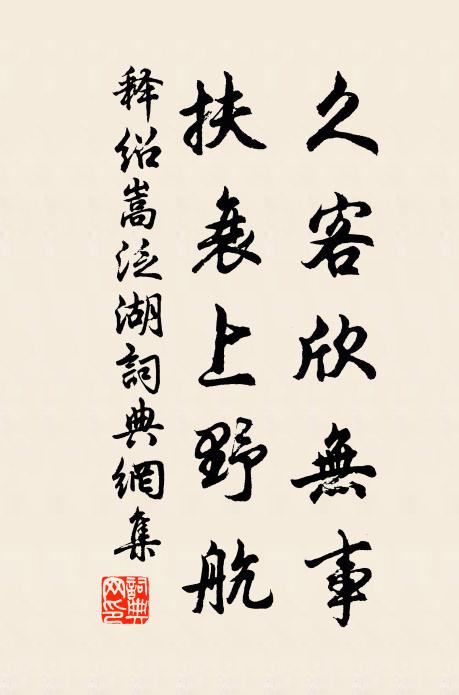 久客欣無事
扶衰上野航
释绍嵩泛湖詞典網集
詞典網印